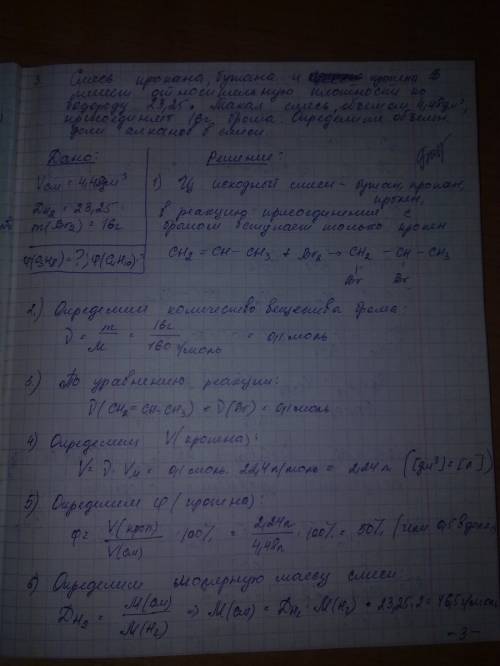 3. Смесь пропана, бутана и пропена
имеет относительную плотность по
водороду 23,25. Такая смесь, объемом 4,48дм³,
присоединяет 16г брома. Определите объемн.
доли алканов в смеси.
Дано:
Vсм = 4,48дм³
DH₂ = 23,25
m(Br₂) = 16г
φ(C₃H₈)=?; φ(C₄H₁₀)-?
Решение:
1) Из исходной смеси - бутан, пропан,
пропен,
в реакцию присоединения с
бромом вступает только пропен
CH₂ = CH - CH₃ + Br₂ → CH₂ - CH - CH₃
Br Br
2) Определим количество вещества брома:
ν = m/M = 16г/160г/моль = 0,1 моль
3) По уравнению реакции:
ν(CH₂=CH-CH₃) = ν(Br) = 0,1 моль
4) Определим V(пропена):
V = ν · Vм = 0,1 моль · 22,4 л/моль = 2,24л ([дм³]=[л])
5) Определим φ(пропена):
φ = V(проп)/V(см) · 100% = 2,24л/4,48л · 100% = 50% (или 0,5 в долях)
6) Определим молярную массу смеси
DH₂ = M(см)/M(H₂) ⇒ M(см) = DH₂ · M(H₂) = 23,25·2 = 46,5г/моль
-3-